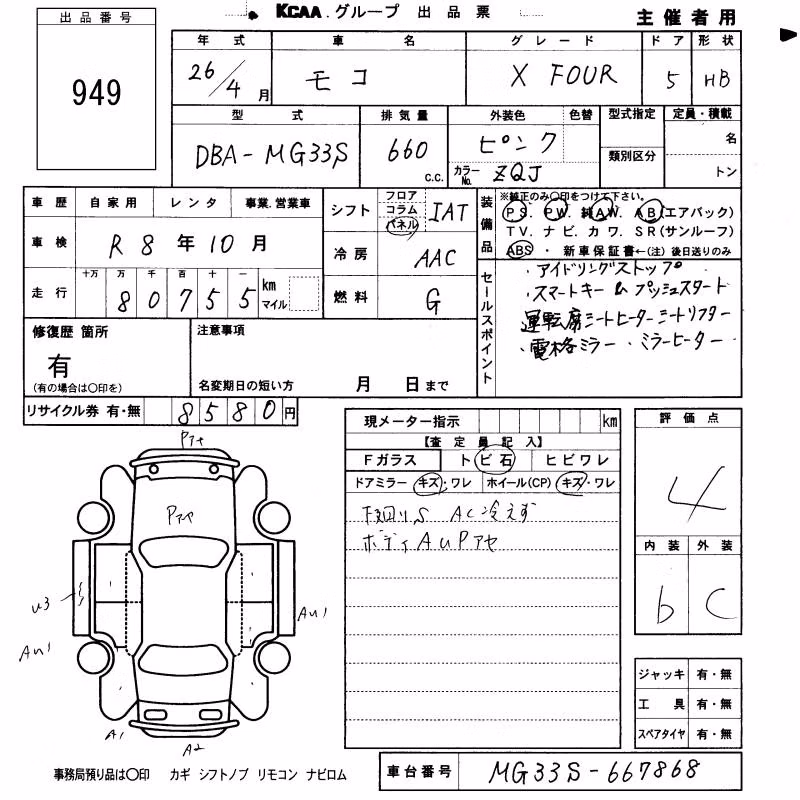 KCAA.グループ 出品票
主催者用
出品番号
949
年式 車名 グレード ドア 形状
26/4月 モコ X FOUR 5 HB
型式 排気量 外装色 色替 型式指定 定員・積載
DBA-MG33S 660 c.c. ピンク 類別区分 名
カラーNo. ZQJ トン
車歴 自家用 レンタ 事業.営業車
車検 R8年10月
走行 十万 万 千 百 十 一
80755 km マイル
シフト フロア コラム パネル IAT
冷房 AAC
燃料 G
装備品 ※純正のみ〇印をつけて下さい。
PS. PW. 純AW. AB(エアバック)
TV. ナビ. カワ. SR(サンルーフ)
ABS ・ 新車保証書←(注) 後日送りのみ
セールスポイント
・アイドリングストップ
・スマートキー & プッシュスタート
運転席シートヒーター シートリフター
・電格ミラー ・ミラーヒーター
修復歴 箇所
有
(有の場合は〇印を)
注意事項
名変期日の短い方 月 日まで
リサイクル券 有・無 8580円
現メーター指示 km
【査定員記入】
Fガラス トビ石 ヒビワレ
ドアミラー キズ・ワレ ホイール(CP) キズ・ワレ
下回りS AC冷えず
ボディAUPアセ
評価点
4
内装 外装
b C
ジャッキ 有・無
工具 有・無
スペアタイヤ 有・無
Pアセ
Pアセ
U3
AU1
AU1
A1
A2
事務局預り品は〇印 カギ シフトノブ リモコン ナビロム
車台番号 MG33S-667868